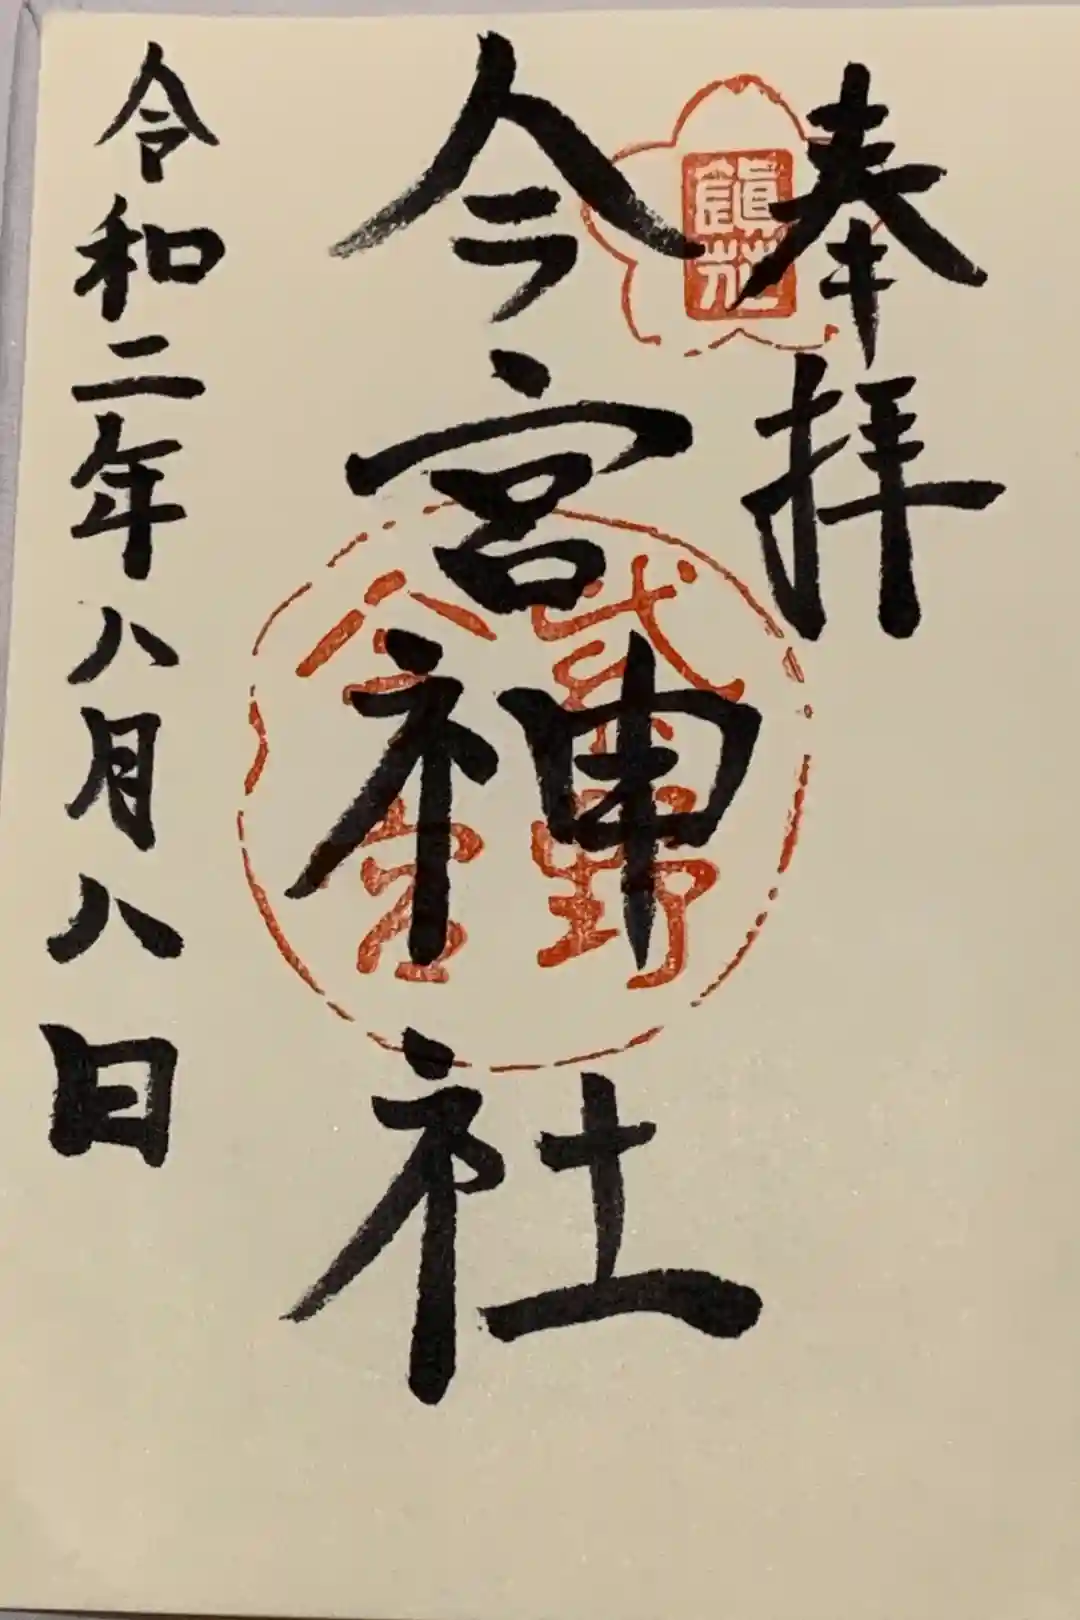 奉拝
鎮花
今宮神社
武射野
今宮
令和二年八月八日